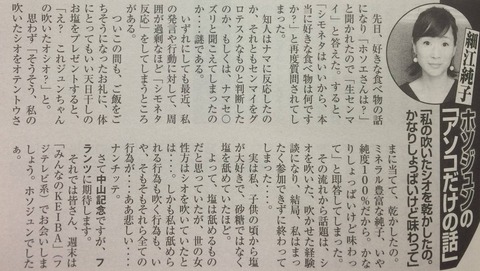 細江純子
ホソジュンの
「アソコだけの話」
「私の吹いたシオを乾かしたの。
かなりしょっぱいけど味わって」
先日、好きな食べ物の話
になり「ホソエさんは？」
と聞かれたので「生センマ
イ」と答えた。すると、
「シモネタはいいから、本
当に好きな食べ物は何です
か？」と再度質問されて
知人はナマに反応したの
か、それともセンマイをグ
ロテスクなものと判断した
のか、もしくは、ナマセ〇
ズリと聞こえてしまったの
か……謎である。
いずれにしても最近、私
の発言や行動に対して、周
囲が過剰なほど「シモネタ
反応」をしてしまうところ
がある。
ついこの間も、ご飯をご
ちそうになったお礼に、体
にとってもいい天日干しの
お塩をプレゼントすると、
「え？ これジュンちゃん
の吹いたオシオ？」と。
思わず「そうそう、私の
吹いたシオをオテントウさ
まに当てて、乾かしたの。
ミネラル豊富な純子、いや
純度100%だから。かな
りしょっぱいけど味わっ
て」と即答してしまった。
その流れから話題は、シ
オを吹いた、吹かせた経験
談になり、結局、私はまっ
たく参加できずに終わって
しまった……。
実は私、子供の頃から塩
が大好きで、砂糖ではなく
塩を舐めていたほど。
よって、塩は舐めるもの
だと思っていたが、世の女
性方はシオを吹いていたと
は……。しかも私は舐めら
れる行為も吹く行為も、い
やそもそもそれら全ての
行為が……ああ悲しい……
ナンチッテ。
さて中山記念ですが、フ
ランツに期待します。
それでは皆さん、週末は
『みんなのKEIBA』（フ
ジテレビ系）でお会いしま
しょう。ホソジュンでした
ぁ。